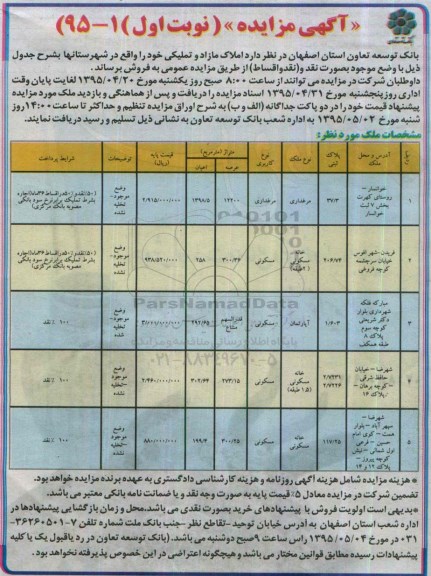 «آگهی مزایده»(نوبت اول)۱-۹۵)
بانک توسعه تعاون استان اصفهان در نظر دارد املاک مازاد و تملیکی خود را واقع در شهرستانها بشرح جدول
ذیل با وضع موجود بصورت نقد و(نقدواقساط) از طریق مزایده عمومی به فروش برساند.
داوطلبان شرکت در مزایده می توانند از ساعت ۸:۰۰ صبح روز یکشنبه مورخ ۱۳۹۵/۰۴/۲۰ لغایت پایان وقت
اداری روز پنجشنبه مورخ ۱۳۹۵/۰۴/۳۱ اسناد مزایده را دریافت و پس از هماهنگی و بازدید ملک مورد مزایده
پیشنهاد قیمت خود را در دو پاکت جداگانه (الف و ب) به شرح اوراق مزایده تنظیم و حداکثر تا ساعت ۱۴:۰۰ روز
شنبه مورخ ۱۳۹۵/۰۵/۰۲ به اداره شعب بانک توسعه تعاون به نشانی ذیل تسلیم و رسید دریافت نمایند.
مشخصات ملک مورد نظر:
آدرس و محل ملک | پلاک ثبتی | نوع ملک | نوع کاربری | متراژ (مترمربع) عرصه | اعیان | قیمت پایه (ریال) | توضیحات | شرایط پرداخت
۱ | خوانسار – روستای کهرت بخش ۷ ثبت خوانسار | ۳۷/۳ | مرغداری | مرغداری | ۱۲۲۰۰ | ۱۳۹۸/۵ | ۲/۹۱۵/۰۰۰/۰۰۰ | وضع موجود- تخلیه نشده
۲ | فریدن-شهر افوس خیابان سرچشمه کوچه فروغی | ۲۰۶/۷۲ | خانه مسکونی (۲طبقه) | مسکونی | ۳۰۰/۳۶ | ۲۵۸ | ۹۳۸/۵۲۰/۰۰۰ | وضع موجود- تخلیه نشده
۳ | مبارکه فلکه شهرداری بلوار دکتر شریعتی کوچه سوم پلاک ۸ طبقه همکف | ۱/۶۰۳ | آپارتمان | مسکونی | قدرالسهم مشاع | وضع موجود- تخلیه نشده | ۱۰۰٪ نقد
۴ | شهرضا – خیابان حافظ شرقی –کوچه برهان – پلاک ۱۶ | خانه مسکونی (۱.۵ طبقه) | مسکونی | ۲۷۳/۱۵ | ۳۰۲/۶۴ | ۲/۴۶۰/۰۰۰/۰۰۰ | وضع موجود –تخلیه نشده | ۱۰۰٪ نقد
۵ | شهرضا – سپهر آباد –بلوار همت – کوی امام حسین – فرعی اول شمالی – نبش کوچه پیروز – پلاک ۱۲ و ۱۴ | ۱۱۷/۲۵ | خانه مسکونی | مسکونی | ۴۰۰/۲۵ | ۱۹۹/۴ | ۸۸۰/۰۰۰/۰۰۰ | وضع موجود –تخلیه نشده | ۱۰۰٪ نقد
ParsNamadData
۰۲۱-۸۸۳۴۹۶۷۰-۵
* هزینه مزایده شامل هزینه آگهی روزنامه و هزینه کارشناسی دادگستری به عهده برنده مزایده خواهد بود.
تضمین شرکت در مزایده معادل ۵٪ قیمت پایه به صورت وجه نقد و یا ضمانت نامه بانکی معتبر می باشد.
*بدیهی است اولویت فروش با پیشنهادهای خرید بصورت نقدی می باشد.محل و زمان بازگشایی پیشنهادها در
اداره شعب استان اصفهان به آدرس خیابان توحید –تقاطع نظر –جنب بانک ملت شماره تلفن ۷-۳۶۲۶۰۵۰۱
۰۳۱ در مورخ ۱۳۹۵/۰۵/۰۴ راس ساعت ۹ صبح دوشنبه می باشد. (بانک توسعه تعاون در رد یا قبول یک یا کلیه
پیشنهادات رسیده مطابق قوانین مختار می باشد و هیچگونه اعتراضی در این خصوص پذیرفته نخواهد بود.